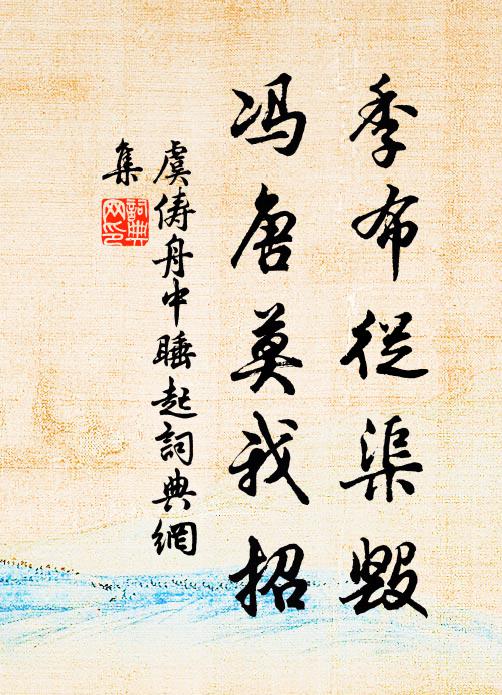 季布從渠毀
冯唐莫我招
虞俦舟中睡起詞典網
集
詞典
网印